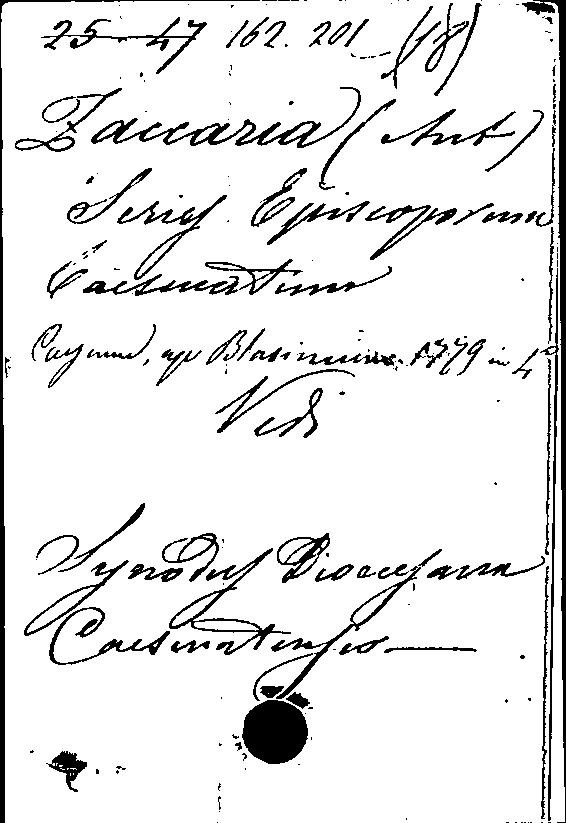 25-47 162. 201 (18)
Zaccaria (Ant)
Series Episcoporum
Caesenatium
Caesenae, ap Blasinium 1779 in 4°
Vedi
Synodus Dioecesana
Caesenatensis